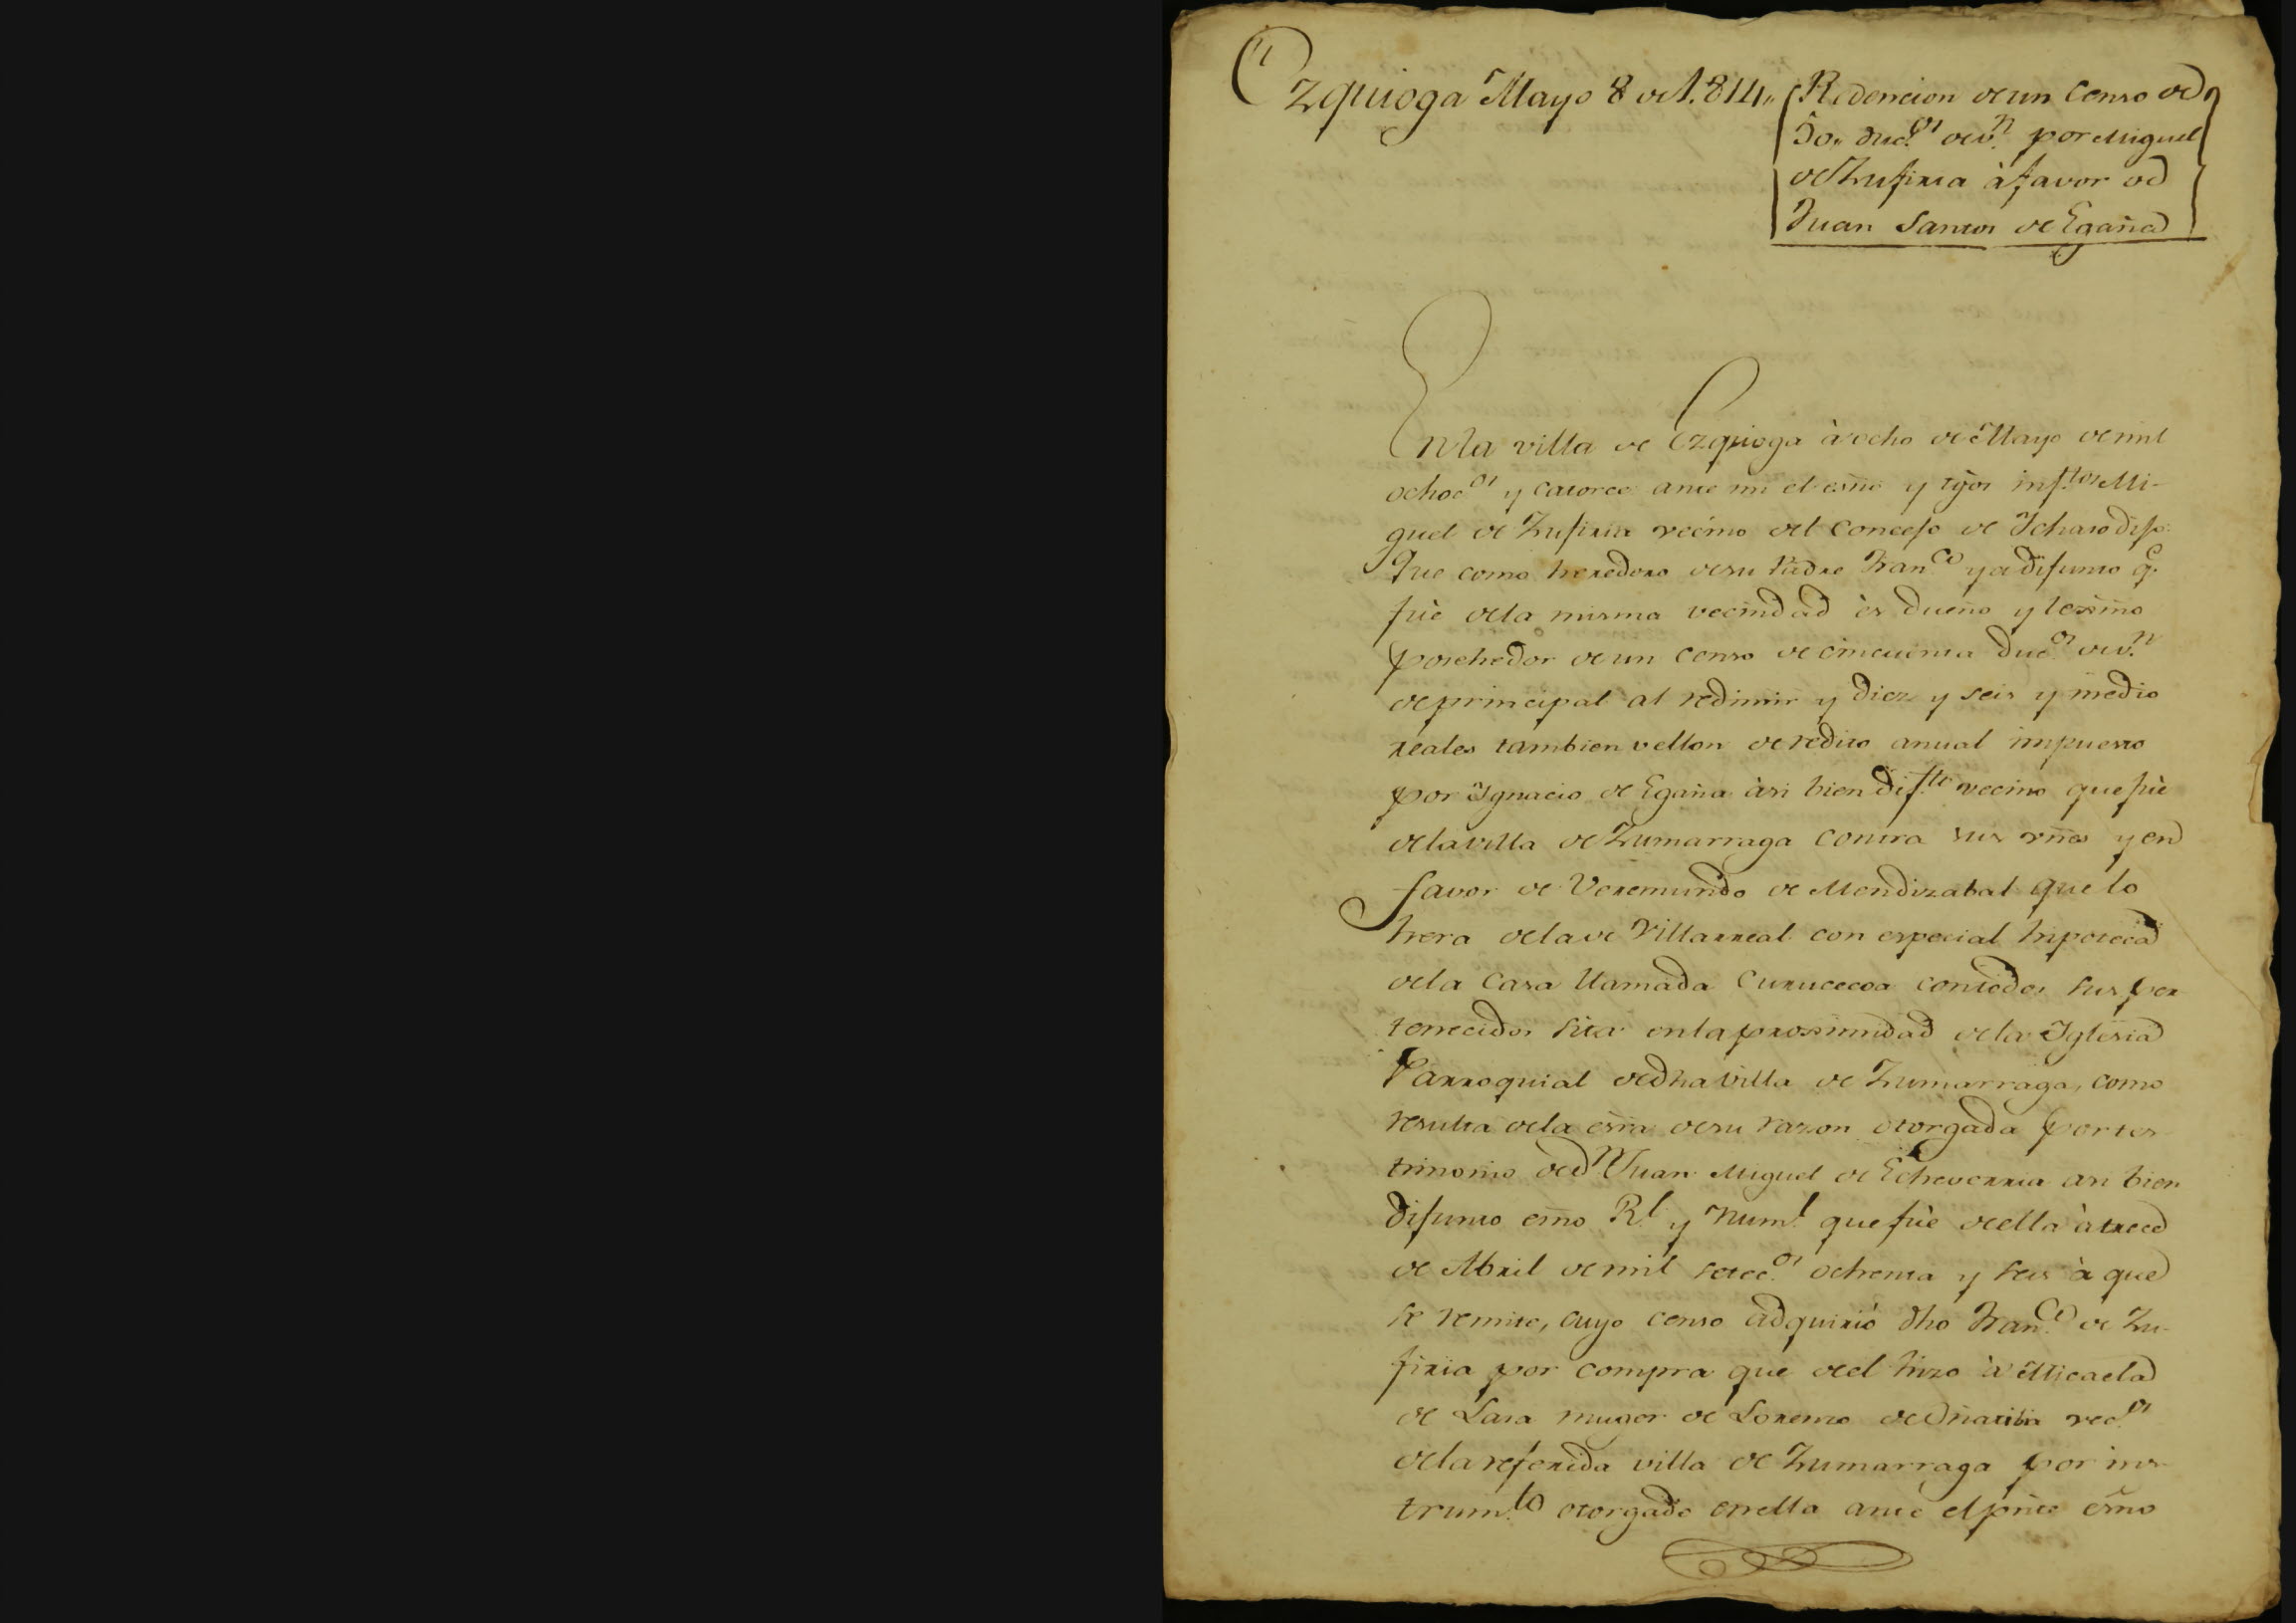 Ezquioga Mayo 8 de 1.814,,
Redencion de un Censo de
50,, duc.os de v.n por Miguel
de Zufiria à favor de
Juan Santos de Egaña
En la villa de Ezquioga à ocho de Mayo de mil
ochoc.os y catorce ante mi el esño y tgos inf.tos Mi-
guel de Zufiria vecino del Concejo de Ichaso dijo:
Que como heredero de su Padre Fran.co ya difunto q.e
fuè de la misma vecindad ès dueño y lexmo
posehedor de un Censo de cincuenta duc.os de v.n
de principal al redimir y diez y seis y medio
reales tambien vellon de redito anual impuesto
por Ignacio de Egaña àsi bien dif.to vecino que fuè
de la villa de Zumarraga contra sus vñes y en
favor de Veremundo de Mendizabal que lo
hera de la de Villarreal con especial hipoteca
de la Casa llamada Curucecoa con todos sus per
tenecidos sita en la proximidad de la Iglesia
Parroquial de dha villa de Zumarraga, como
resulta de la esra de su razon otorgada por tes-
timonio de D.n Juan Miguel de Echeverria asi bien
difunto esño R.l y Num.l que fuè de ella à trece
de Abril de mil setec.os ochenta y seis à que
se remite, cuyo censo adquirió dho Fran.co de Zu-
firia por compra que de el hizo à Micaela
de Lasa muger de Lorenzo de Oñatibia vec.os
de la referida villa de Zumarraga por ins-
trum.to otorgado en ella ante el pñte esño